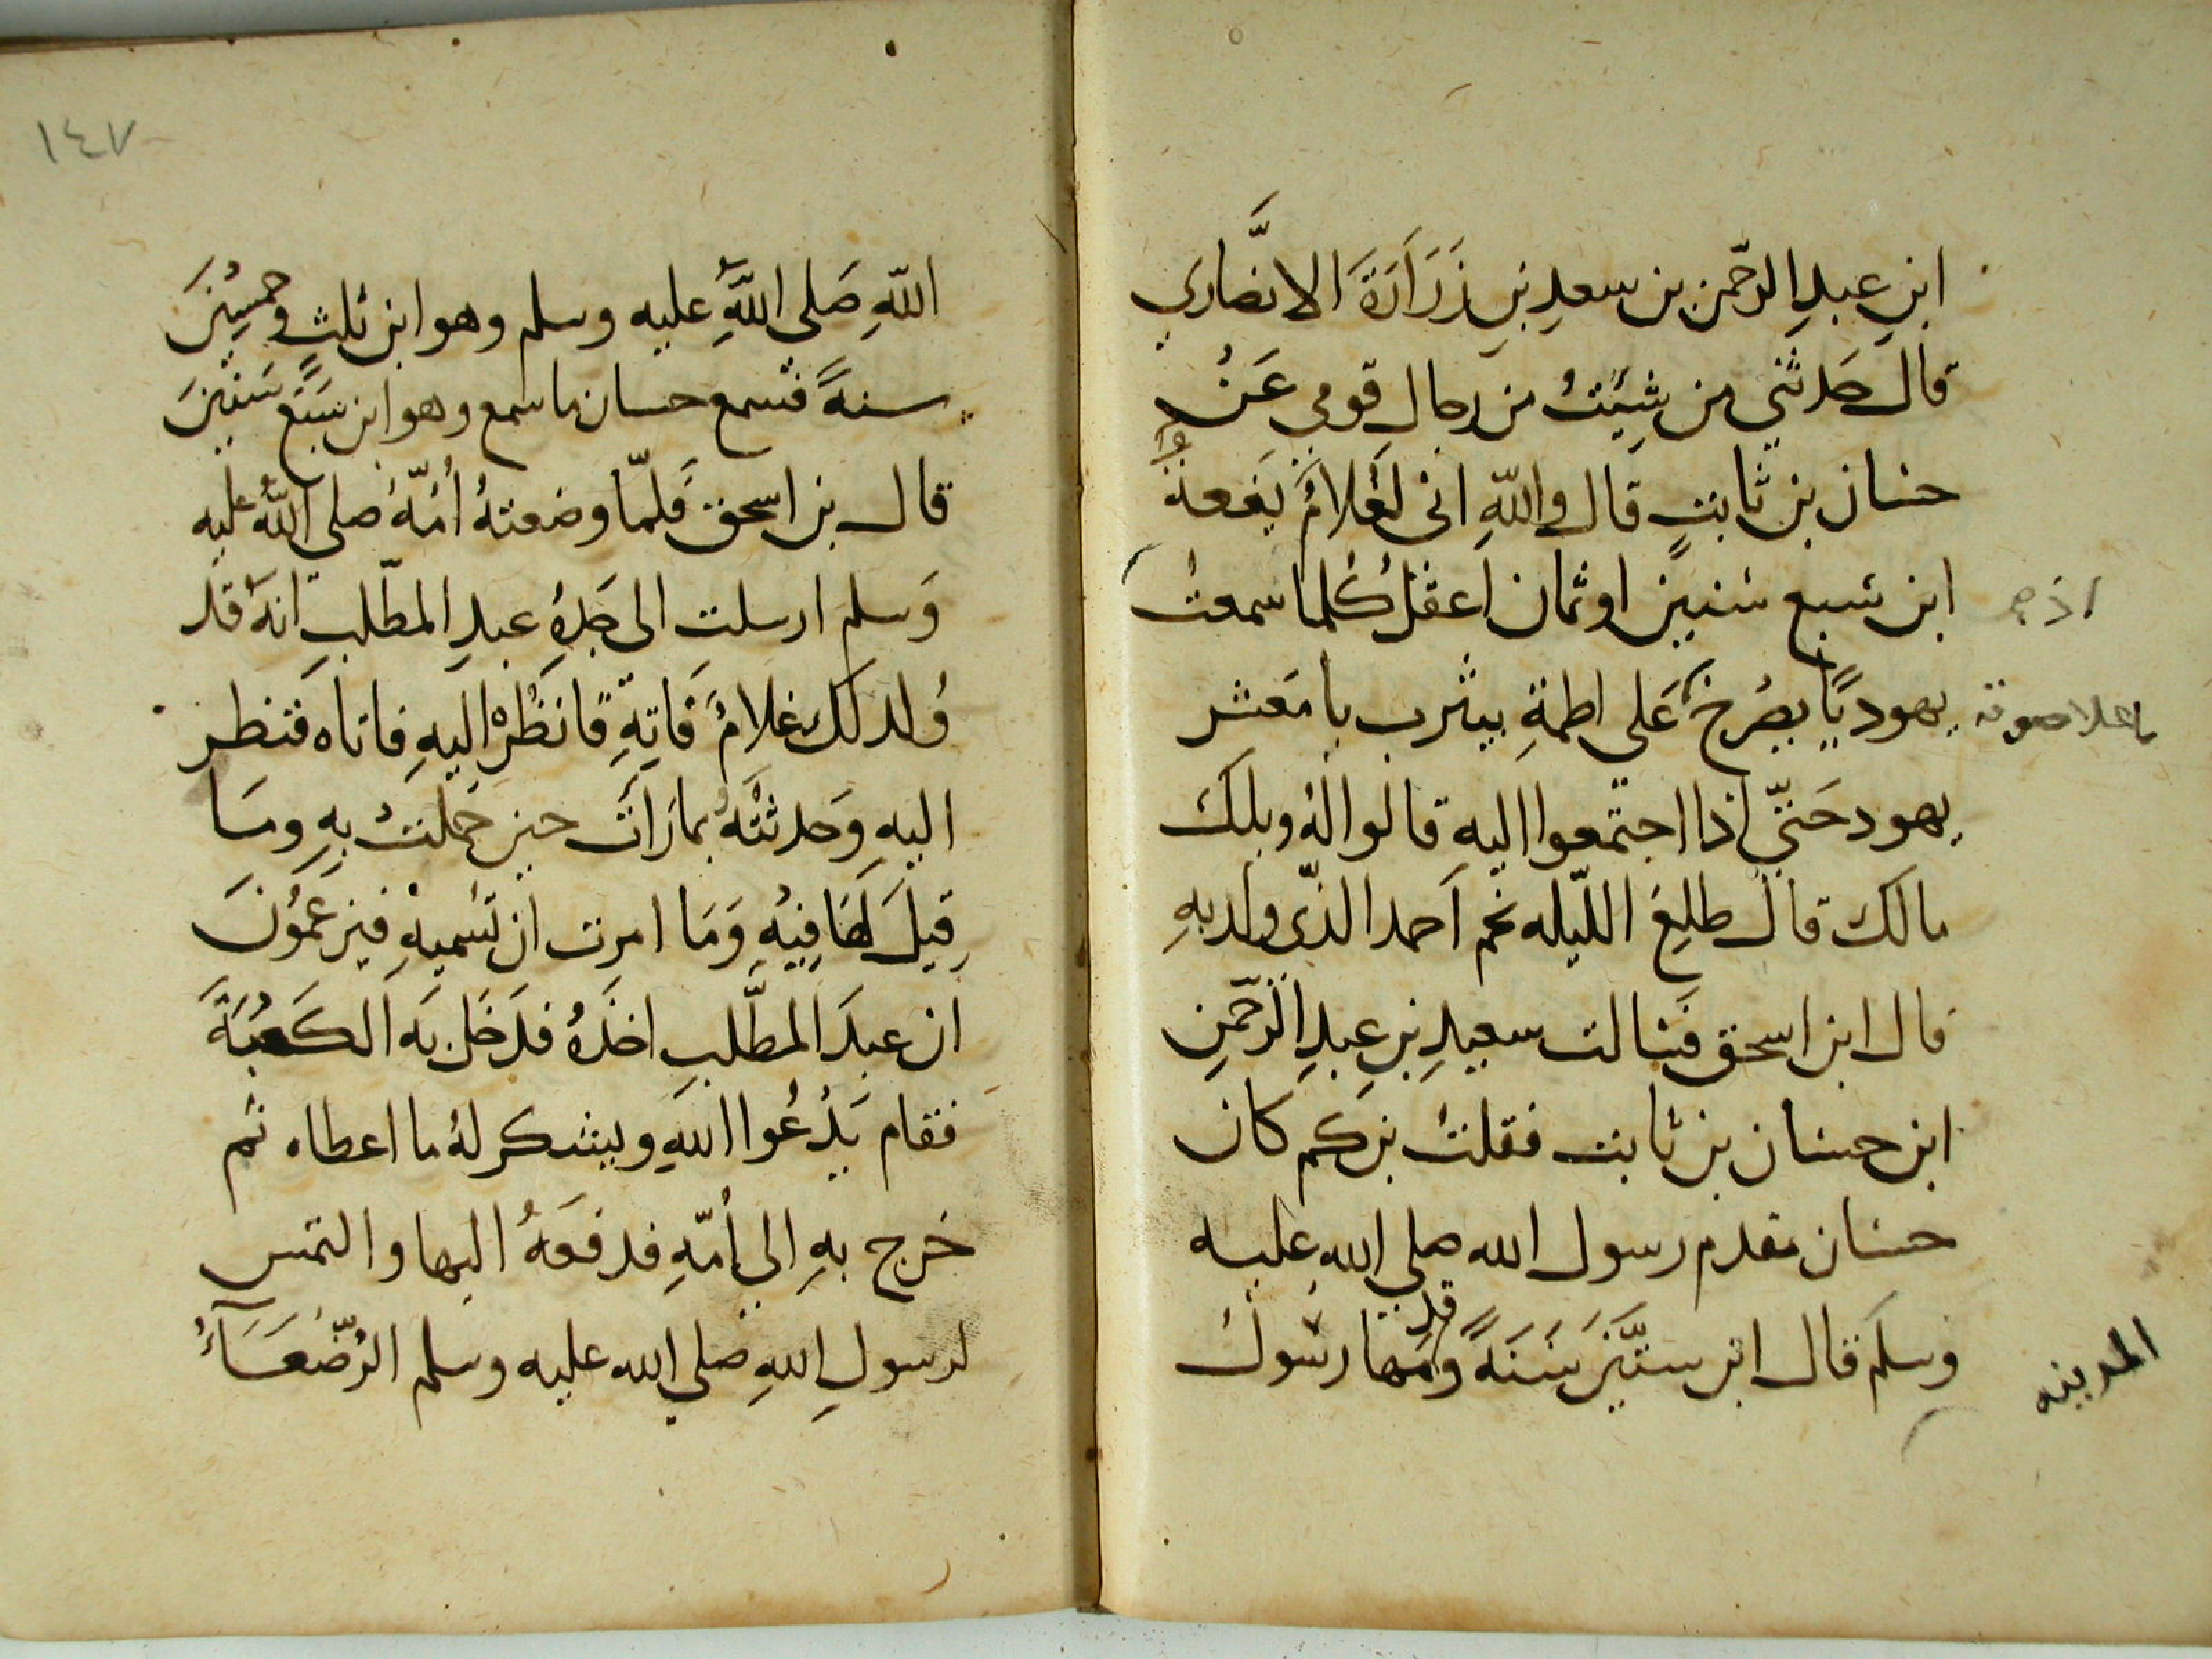 ابنِ عبدِ الرّحمن بن سعدِ بنِ زَرَارَةَ الانصَّاري
قال حَدثني من شِيئتُ من رجال قومي عَنْ
حسان بن ثابتٍ قال واللهِ اني لَغُلامٌ يَفعةٌ
ابن سبع سنين او ثمان اعقلُ كُلما سمعتُ
اذ
يهوديًا يصْرخُ عَلى اطمةِ بيثرب يا مَعشر
باعلا صوته
يهود حَتيّ اذا اجتمعوا اليه قالوا لهُ ويلك
مالك قال طلِعَ اللّيله نجم احمد الذّي ولد بهِ
قال ابن اسحق فسَالت سعيدِ بنِ عبدِ الرّحمنِ
ابن حسان بن ثابت فقلتُ بن كم كان
حسان مقدم رسول الله صلي الله عليه
المدينه
وسلمَ قال ابن ستّينَ سَنَةً وقدمها رسول
١٤٧
اللهِ صَلى اللهُ عليه وسلم وهو ابن ثلثٍ وخمسِينَ
سنةً فسمع حسان ما سمع وهو ابن سَبعٍ سَنينَ
قال بن اسحق فَلمّا وضعتهُ اُمّهُ صلى اللهُ عليه
وَسلم ارسلت الى جَدِهِ عبدِ المطّلبِ انهُ قد
وُلد لك غلامٌ فَاتِهِ فَانظُرْ اليهِ فاتاه فنظر
اليهِ وَحدثتهُ بما رَات حين حَملتْ بِهِ ومَا
قِيلَ لهَا فِيْهِ وَمَا امرت ان تسْميهِ فيزعمُونَ
ان عبدَ المطّلبِ اخَذهُ فدَخَل بهَ الكَعْبَةَ
فقام يَدْعُوا اللهَ ويشكر لهُ ما اعطاه ثم
خرج بهِ الي اُمّهِ فدفعَهُ اليها والتمس
لرسولِ اللهِ صلي الله عليه وسلم الرُّضَعَآءُ